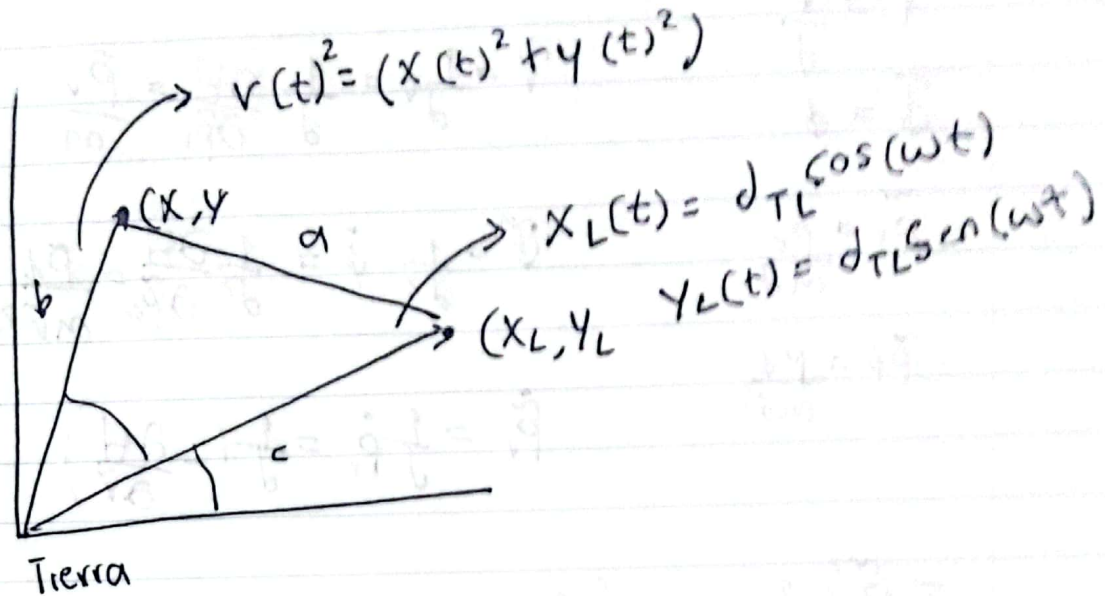 r(t)²= (x(t)² + y(t)²)
(x,y
a
X_L(t) = d_TL cos(ωt)
Y_L(t) = d_TL Sen(ωt)
b
(X_L, Y_L
c
Tierra